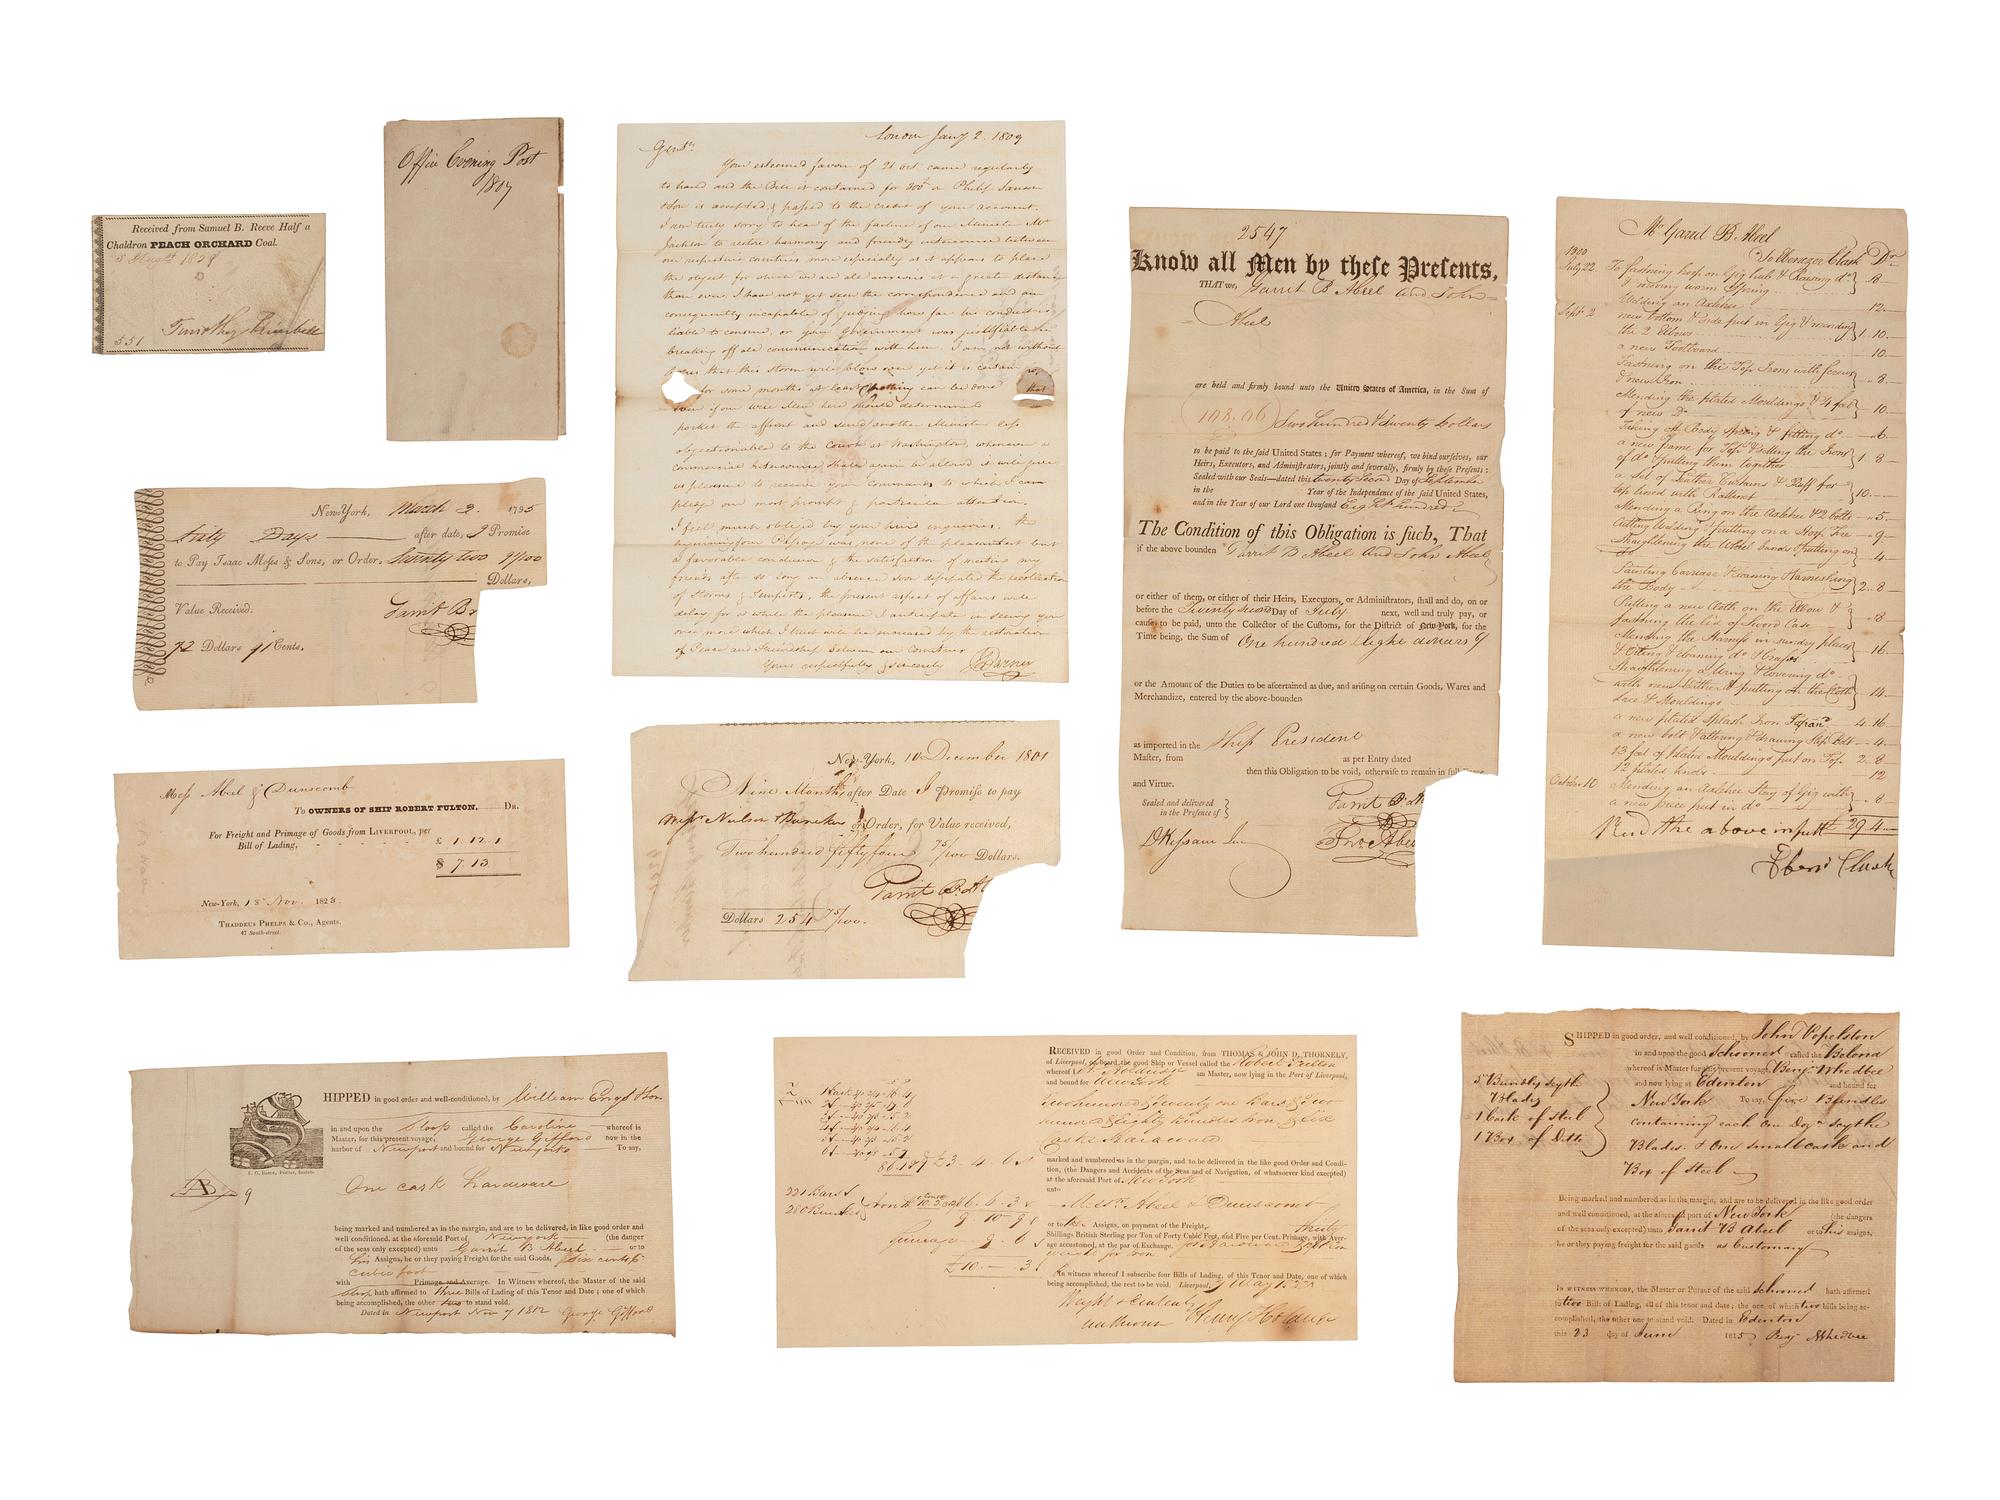 Received from Samuel B. Reeve Half a
Chaldron PEACH ORCHARD Coal.
5 Augt 1829
Timothy
551
Office Evening Post
1807
New-York, March 2. 1795
Sixty Days after date, I Promise
to Pay Isaac Moses & Sons, or Order, Seventy two 91/100
Dollars,
Value Received.
Garrit B
72 Dollars 91 Cents.
Messrs Abeel & Dunscomb
To OWNERS OF SHIP ROBERT FULTON, DR.
For Freight and Primage of Goods from LIVERPOOL, per
Bill of Lading, £ 1.12.1
$ 7.13
New-York, 18 Nov. 1823.
THADDEUS PHELPS & Co., Agents,
47 South-street.
London Jany 2. 1809
Gentn
Your esteemed favour of 21 Oct. came regularly
to hand and the Bill it contained for 300£ on Philip Sansom
& Son is accepted & passed to the credit of your account.
I am truly sorry to hear of the failure of our Minister Mr
Jackson to restore harmony and friendly intercourse between
our respective countries more especially as it appears to place
the object for which we are all anxious at a greater distance
than ever. I have not yet seen the correspondence and am
consequently incapable of judging how far his conduct is
liable to censure, or your Government was justifiable in
breaking off all communication with him. I am not without
hopes that this storm will blow over yet it is certain
for some months at least nothing can be done
even if our wise Men here should determine to
pocket the affront and send another Minister less
objectionable to the Court at Washington, whenever a
commercial intercourse shall again be allowed it will give
us pleasure to receive your commands to which I can
pledge our most prompt & particular attention.
I feel much obliged by your kind inquiries, the
beginning of our Passage was none of the pleasantest but
a favorable conclusion & the satisfaction of meeting my
friends after so long an absence soon dissipated the recollection
of Storms & Tempests, the present aspect of affairs will
delay for a while the pleasure I anticipate in seeing you
once more which I trust will be increased by the restoration
of Peace and Friendship between our Countries
Yours respectfully & sincerely
New-York, 10 December 1801
Nine Months after Date I Promise to pay
Messrs Neilson & Bunker or Order, for Value received,
Two hundred fifty four 75/100 Dollars.
Garrit B. Ab
Dollars 254 75/100.
2547
Know all Men by these Presents,
THAT we, Garrit B Abeel and John
Abeel
are held and firmly bound unto the United States of America, in the Sum of
108.06 Two hundred & twenty Dollars
to be paid to the said United States; for Payment whereof, we bind ourselves, our
Heirs, Executors, and Administrators, jointly and severally, firmly by these Presents:
Sealed with our Seals—dated this twenty two Day of September
in the Year of the Independence of the said United States,
and in the Year of our Lord one thousand Eight hundred
The Condition of this Obligation is such, That
if the above bounden Garrit B Abeel and John Abeel
or either of them, or either of their Heirs, Executors, or Administrators, shall and do, on or
before the Twenty second Day of July next, well and truly pay, or
cause to be paid, unto the Collector of the Customs, for the District of New-York, for the
Time being, the Sum of One hundred & eight dollars 6/
or the Amount of the Duties to be ascertained as due, and arising on certain Goods, Wares and
Merchandize, entered by the above-bounden
as imported in the Ship President
Master, from as per Entry dated
then this Obligation to be void, otherwise to remain in full Force
and Virtue.
Sealed and delivered
in the Presence of
Garrit B. Ab
D Kissam Jur
Jno Abee
Mr Garret B. Abeel
To Ebenezer Clark Dr
1800
July 22 To fastning hoop on Gig hub & Raising do
& moving worm Spring 8
Welding an Axletree 12
Sept 2 new bottom & side put in Gig & mending
the 2 Elbows 1.10
a new Footboard 10
Fastning on the Top Irons with Screws
& new Iron 8
Mending the plated Mouldings & 4 feet
of new Do 10
Taking off Body Spring & fitting do 6
a new frame for Top & Setting the Irons
of do & putting them together 1.8
a Set of Leather Curtains & Roff for
top lined with Rattinet 10
Mending a Ring on the Axletree & 2 bolts 5
Cutting Welding & putting on a Hoop Tire 9
Straightening the Wheel bands & putting on
do 4
Painting Carriage & Cleaning Harnishing
the Body 2.8
Putting a new Cloth on the Elbow &
fastning the lid of Sword Case 8
Mending the Harness in sundry places
& Oiling & Cleaning do & brasses 16
Straightening a Wing & Covering do
with new Leather & putting on the Cloth
Lace & Mouldings 14
a new plated Splash Iron Japand 4.16
a new bolt & altering & drawing Ship Bolt 4
13 feet of plated Mouldings put on Top 2.8
12 plated knobs 12
Octobr 10 Mending an Axletree Stay of Gig with
a new piece put in do 8
Recd the above in full £29.4
Ebenr Clark
SHIPPED in good order and well-conditioned, by William Engs & Son
in and upon the Sloop called the Caroline whereof is
Master, for this present voyage, George Gifford now in the
harbor of Newport and bound for Newyork To say,
AB 9
One cask hardware
being marked and numbered as in the margin, and are to be delivered, in like good order and
well conditioned, at the aforesaid Port of Newyork (the danger
of the seas only excepted) unto Garrit B Abeel or to
his Assigns, he or they paying Freight for the said Goods, Six cents p
cubic foot
with Primage and Average. In Witness whereof, the Master of the said
Sloop hath affirmed to three Bills of Lading of this Tenor and Date; one of which
being accomplished, the other two to stand void.
Dated in Newport Nov 7 1812 George Gifford
RECEIVED in good Order and Condition, from THOMAS & JOHN D. THORNELY,
of Liverpool, on board the good Ship or Vessel called the Robert Fulton
whereof is H Holdredge am Master, now lying in the Port of Liverpool,
and bound for New York
Two hundred & twenty one Bars & Two
hundred & Eighty Bundles Iron, & Six
Casks
marked and numbered as in the margin, and to be delivered in the like good Order and Condi-
tion, (the Dangers and Accidents of the Seas and of Navigation, of whatsoever kind excepted)
at the aforesaid Port of New York
unto
Messrs Abeel & Dunscomb
or to their Assigns, on payment of the Freight, thirty
Shillings British Sterling per Ton of Forty Cubic Feet, and Five per Cent. Primage, with Aver-
age accustomed, at the par of Exchange.
In witness whereof I subscribe four Bills of Lading, of this Tenor and Date, one of which
being accomplished, the rest to be void. Liverpool, 7 May 1823
Weight & Contents
unknown Henry Holdredge
221 Bars
280 Bundles
SHIPPED in good order, and well conditioned, by John Popelston
in and upon the good Schooner called the Belona
whereof is Master for this present voyage Benj. Whedbee
and now lying at Edenton and bound for
New York To say, five Bundles
containing each One Doz Scythe
Blades. & One small cask and
Box of Steel
5 Bundles Scythe
Blades
1 Cask of Steel
1 Box of Ditto
Being marked and numbered as in the margin, and are to be delivered in the like good order
and well conditioned, at the aforesaid port of New York (the dangers
of the seas only excepted) unto Garrit B Abeel or to his assigns,
he or they paying freight for the said goods as Customary
IN WITNESS WHEREOF, the Master or Purser of the said Schooner hath affirmed
to two Bills of Lading, all of this tenor and date; the one of which two bills being ac-
complished, the other one to stand void. Dated in Edenton
this 23 day of June 1815 Benj Whedbee